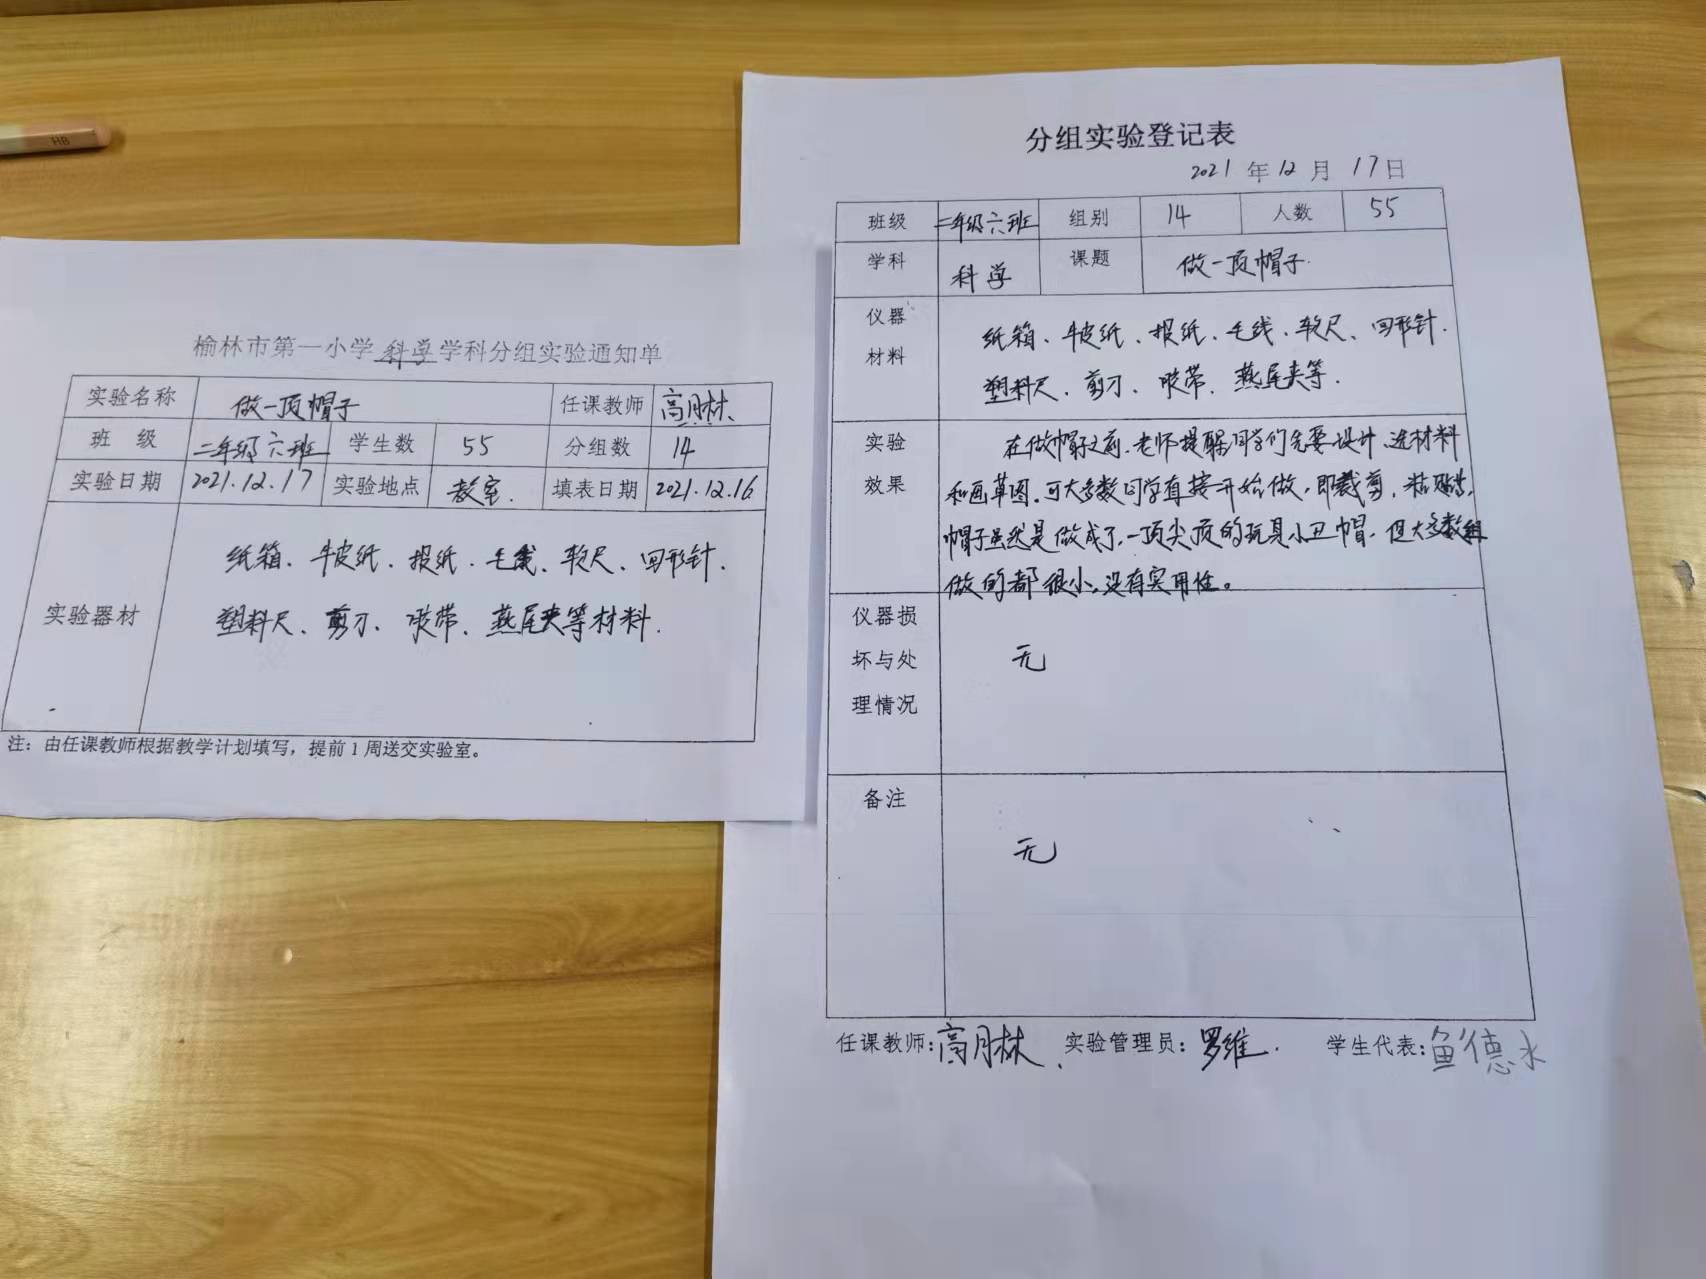 HB
榆林市第一小学科学学科分组实验通知单
实验名称 做一顶帽子 任课教师 高月林
班 级 二年级六班 学生数 55 分组数 14
实验日期 2021.12.17 实验地点 教室. 填表日期 2021.12.16
纸箱、牛皮纸、报纸、毛线、软尺、回形针.
实验器材 塑料尺、剪刀、胶带、燕尾夹等材料.
注：由任课教师根据教学计划填写，提前1周送交实验室。
分组实验登记表
2021 年 12 月 17 日
班级 二年级六班 组别 14 人数 55
学科 科学 课题 做一顶帽子.
仪器 纸箱、牛皮纸、报纸、毛线、软尺、回形针.
材料 塑料尺、剪刀、胶带、燕尾夹等.
实验 在做帽子之前,老师提醒同学们先要设计、选材料
效果 和画草图,可大多数同学直接开始做,即裁剪、粘贴,
帽子虽然是做成了,一顶尖顶的玩具小丑帽,但大多数组
做的都很小,没有实用性。
仪器损
坏与处 无
理情况
备注
无
任课教师:高月林. 实验管理员：罗维. 学生代表:鱼德水